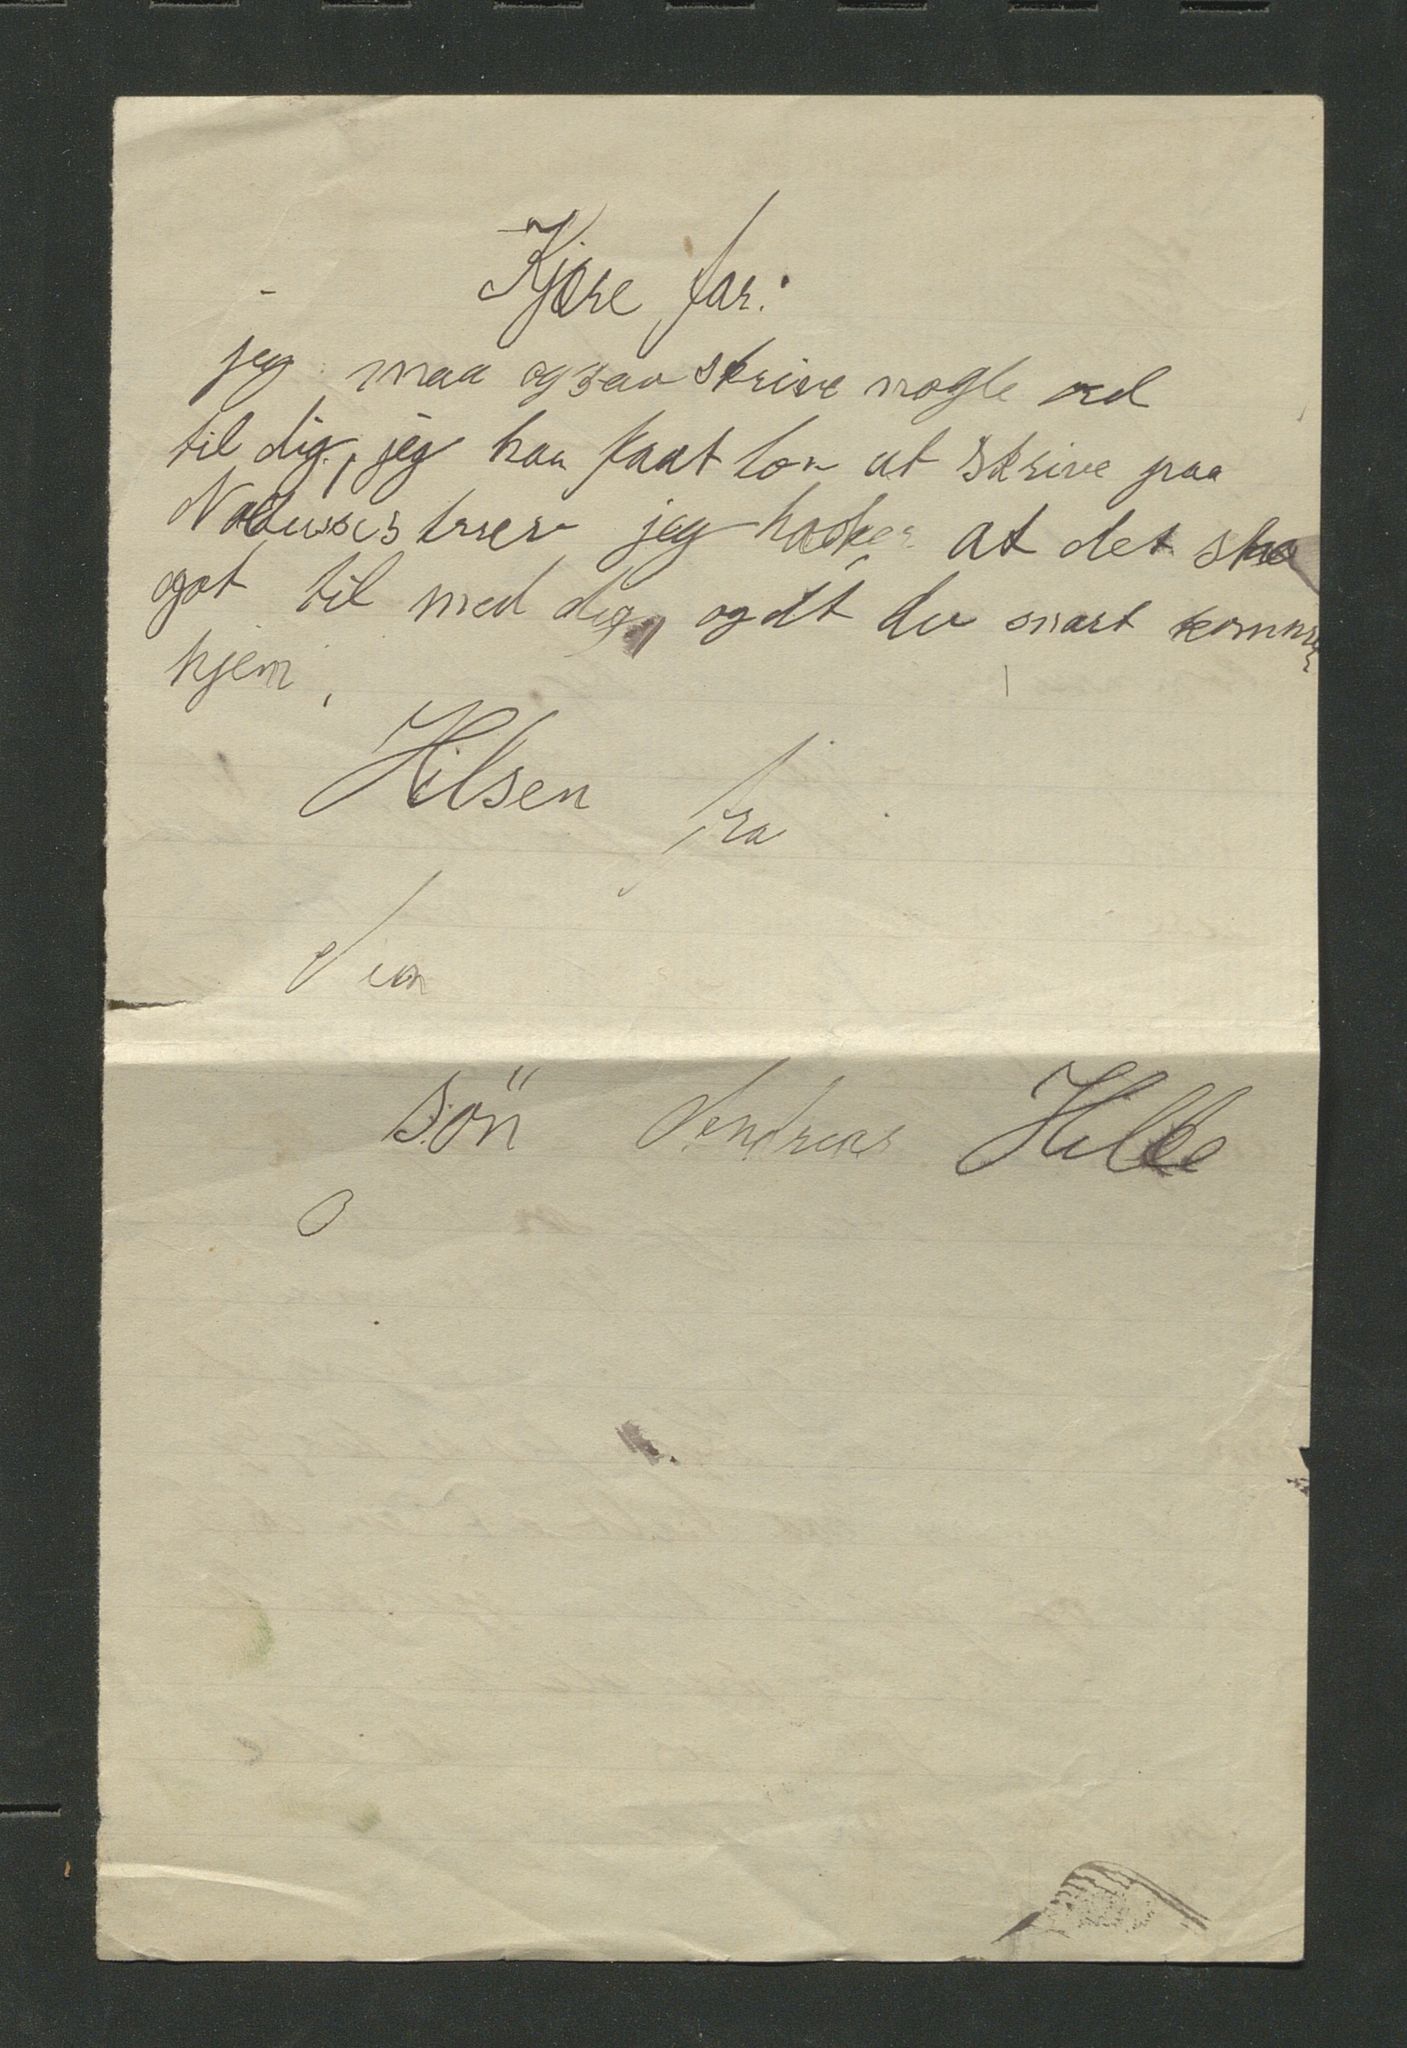 Kjære far:
jeg maa ogsaa skrive nogle ord
til dig, jeg har faat lov at skrive paa
jeg haaber at det staa
got til med dig, og at du snart kommer
hjem.
Hilsen fra
din
sön Andreas Hille